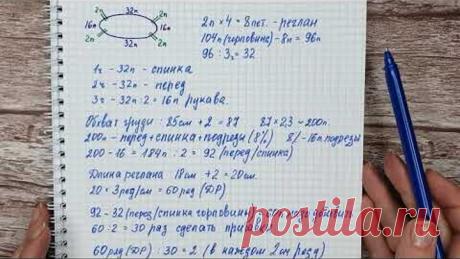 32п
2п 2п
16п 16п
2п 2п
32п
2п × 4 = 8 пет. - реглан
104п (горловина) - 8п = 96п
96 : 3 = 32
1ч - 32п - спинка
2ч - 32п - перед
3ч - 32п : 2 = 16п рукава.
Обхват груди : 85см + 2 = 87 87 × 2,3 = 200п.
200п - перед + спинка + подрезы (8%) 8% - 16п подрезы
200 - 16 = 184п : 2 = 92 (перед/спинка)
Длина реглана 18см + 2 = 20см.
20 × 3ряд/см = 60ряд (ДР)
92 - 32 (перед/спинка горловины) = 60п надо добавить
60 : 2 = 30 раз сделать
60ряд (ДР) : 30 = 2 (в каждом 2ом ряду)
POSTILA.RU